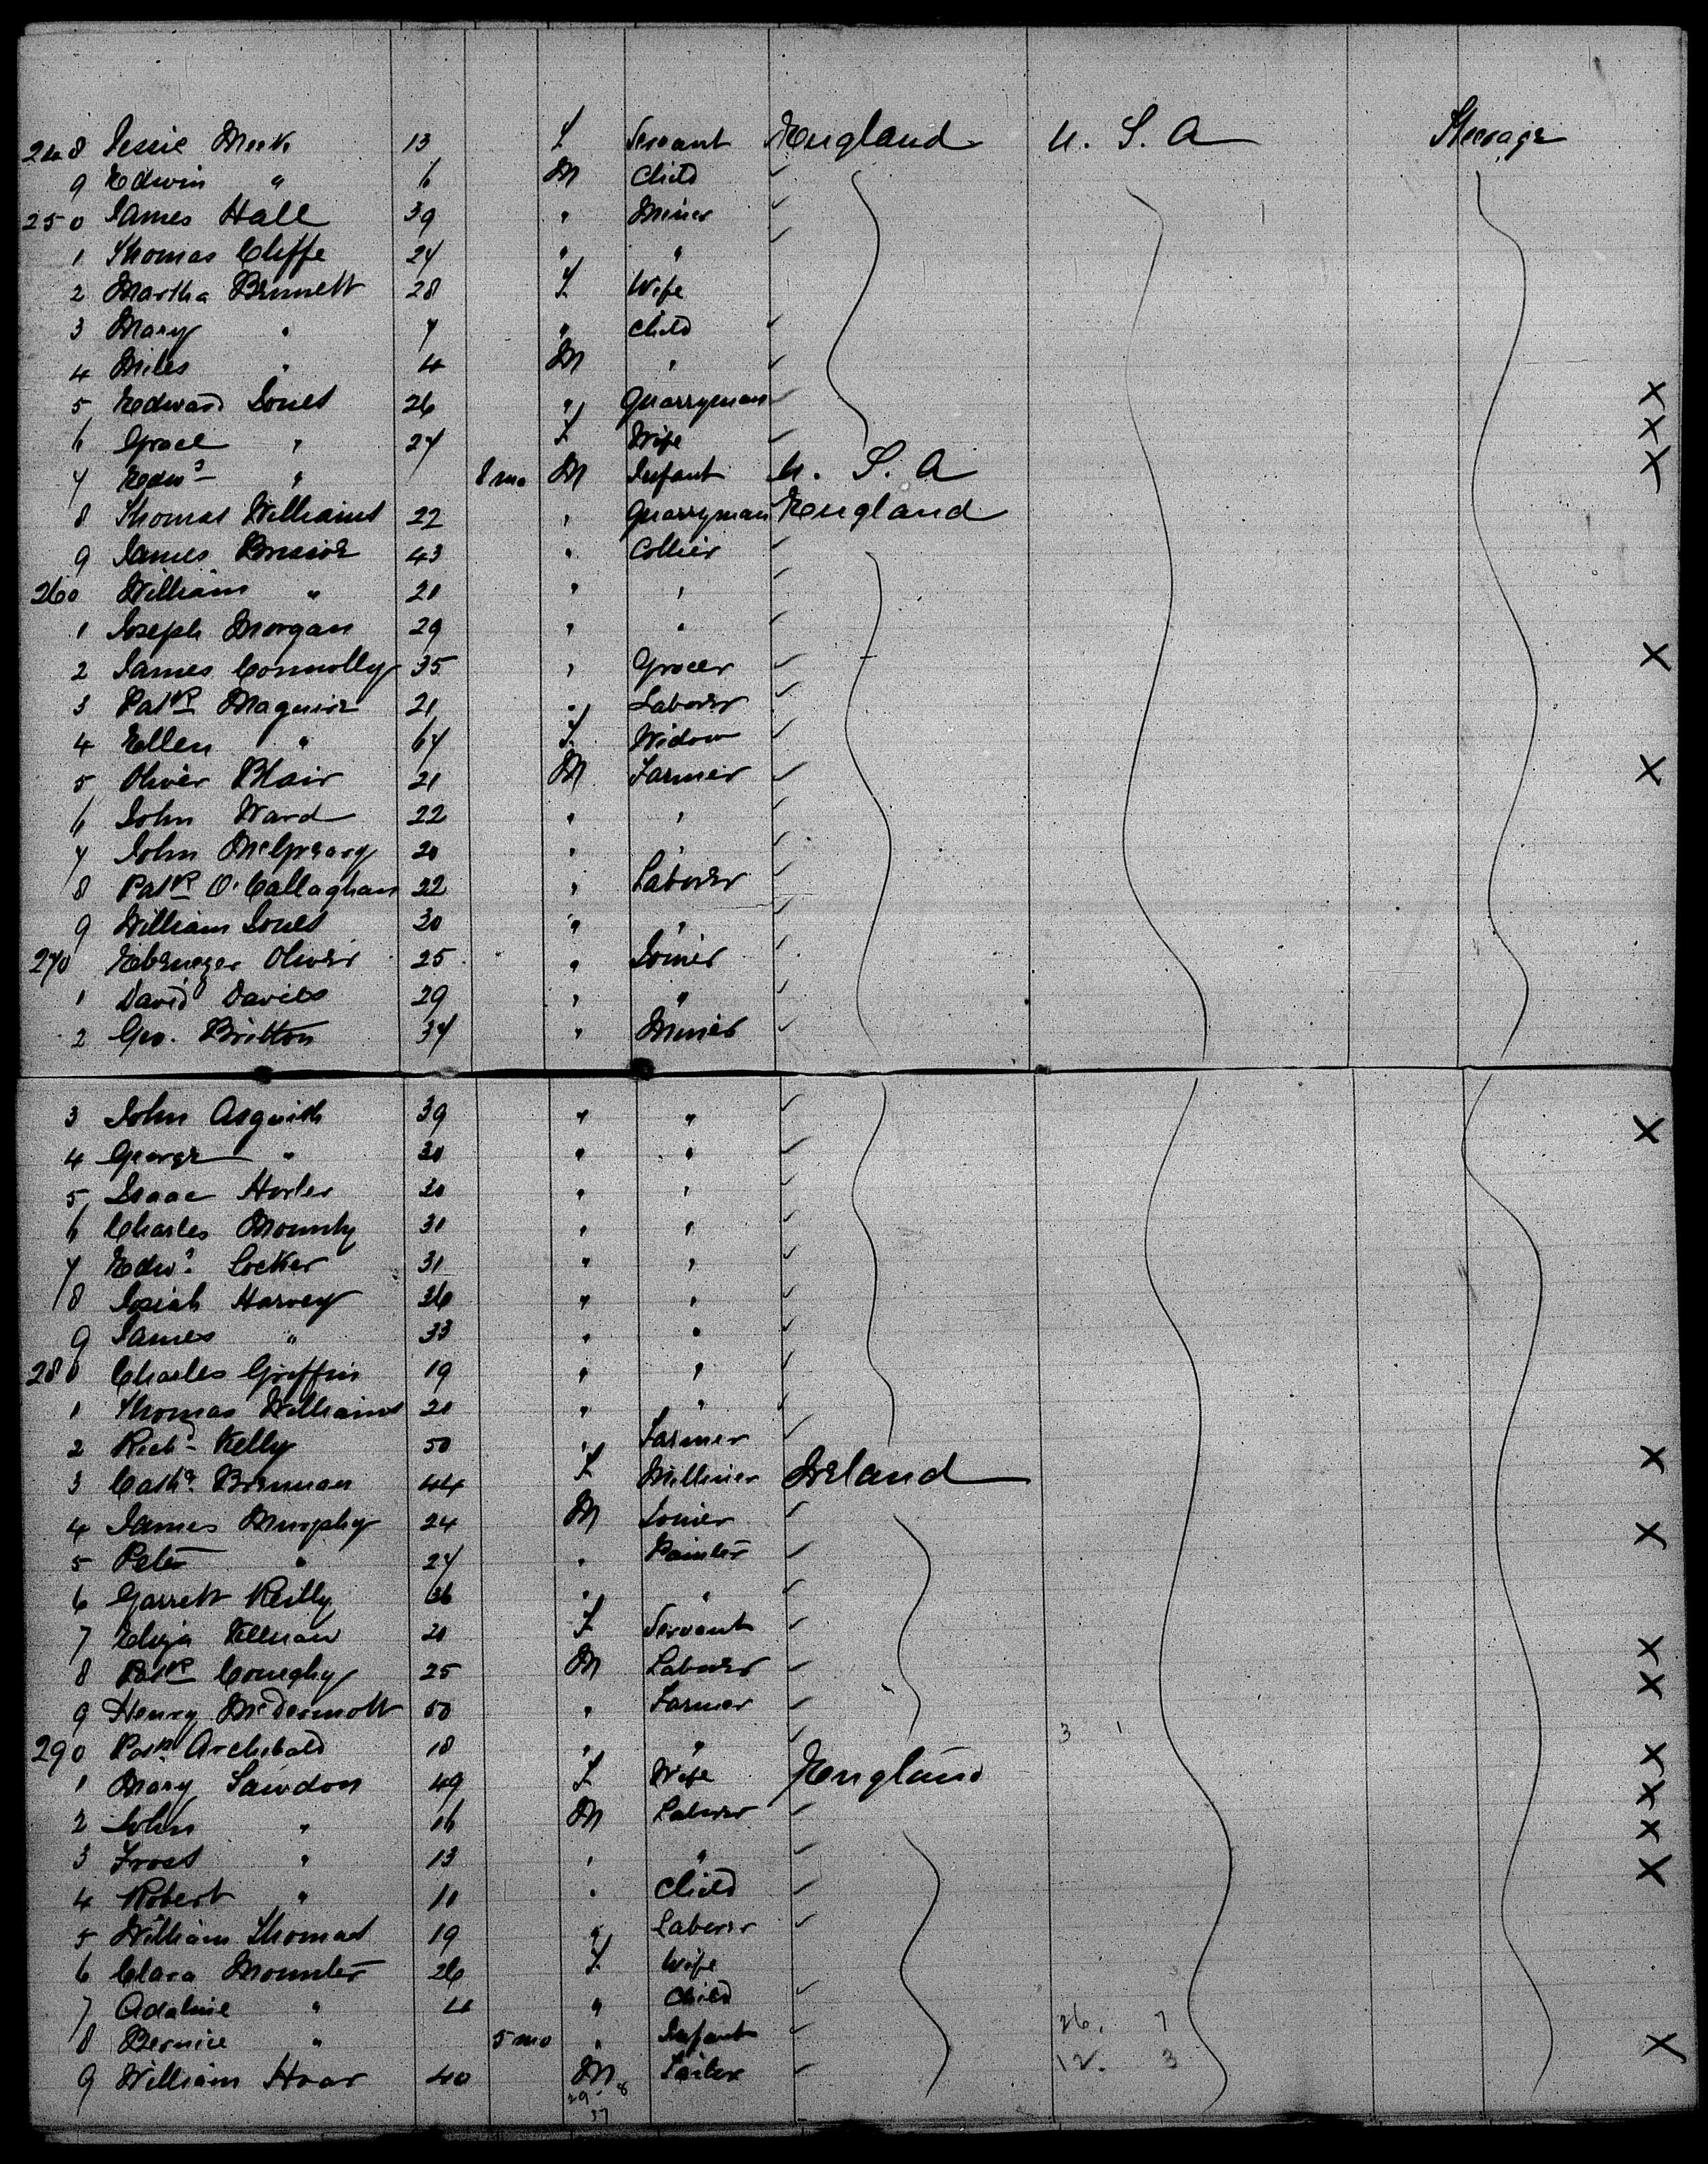 248 Jessie Meek 13 F Servant England U. S. A Steerage
9 Edwin " 6 M Child ✓
250 James Hall 39 " Miner ✓
1 Thomas Cliffe 27 " " ✓
2 Martha Bennett 28 F Wife
3 Mary " 7 " Child ✓
4 Miles " 4 M " ✓
5 Edward Jones 26 " Quarryman ✓ X
6 Grace " 27 F Wife ✓ X
7 Edwd " 8 mo M Infant U. S. A X
8 Thomas Williams 22 " Quarryman England
9 James 43 " Collier ✓
260 William " 21 " " ✓
1 Joseph Morgan 29 " " ✓
2 James Connolly 35 " Grocer ✓ X
3 Patk Maguire 21 " Laborer ✓
4 Ellen " 67 F Widow ✓
5 Oliver Blair 21 M Farmer ✓ X
6 John Ward 22 " " ✓
7 John McGreavy 20 " " ✓
8 Patk O'Callaghan 22 " Laborer ✓
9 William Jones 30 " " ✓
270 Ebenezer Oliver 25 " Joiner ✓
1 David Davies 29 " " ✓
2 Geo. Britton 37 " Miner ✓
3 John Asquith 39 " " ✓ X
4 George " 30 " " ✓
5 Isaac 20 " " ✓
6 Charles 31 " " ✓
7 Edwd Locker 31 " " ✓
8 Josiah Harvey 36 " " ✓
9 James " 33 " " ✓
280 Charles Griffin 19 " " ✓
1 Thomas Williams 21 " " ✓
2 Richd Kelly 50 " Farmer ✓
3 Cathe Brennan 44 F Milliner Ireland X
4 James Murphy 24 M Joiner ✓
5 Peter " 27 " Painter ✓ X
6 Garrett Reilly 36 " " ✓
7 Eliza 20 F Servant ✓
8 Patk 25 M Laborer ✓ X
9 Henry McDermott 50 " Farmer ✓ X
290 Patk Archibald 18 " " ✓ 3 1
1 Mary Sawdon 49 F Wife England X
2 John " 16 M Laborer ✓ X
3 Frost " 13 " " ✓ X
4 Robert " 11 " Child ✓ X
5 William Thomas 19 " Laborer ✓
6 Clara Mounter 26 F Wife
7 Adaline " 4 " Child ✓
8 Bernice " 5 mo " Infant ✓ 26. 7
9 William Hoar 40 M Tailor ✓ 12. 3 X
29 8
37